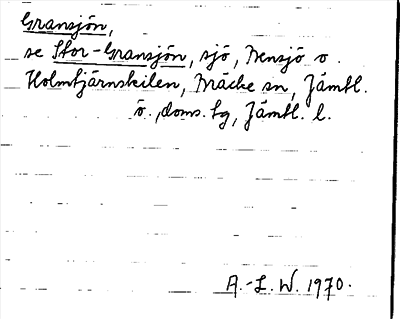 Gransjön,
se Stor-Gransjön, sjö, Nensjö o.
Holmtjärnskilen, Bräcke sn, Jämtl.
ö., doms. tg, Jämtl. l.
A.-L. W. 1970.